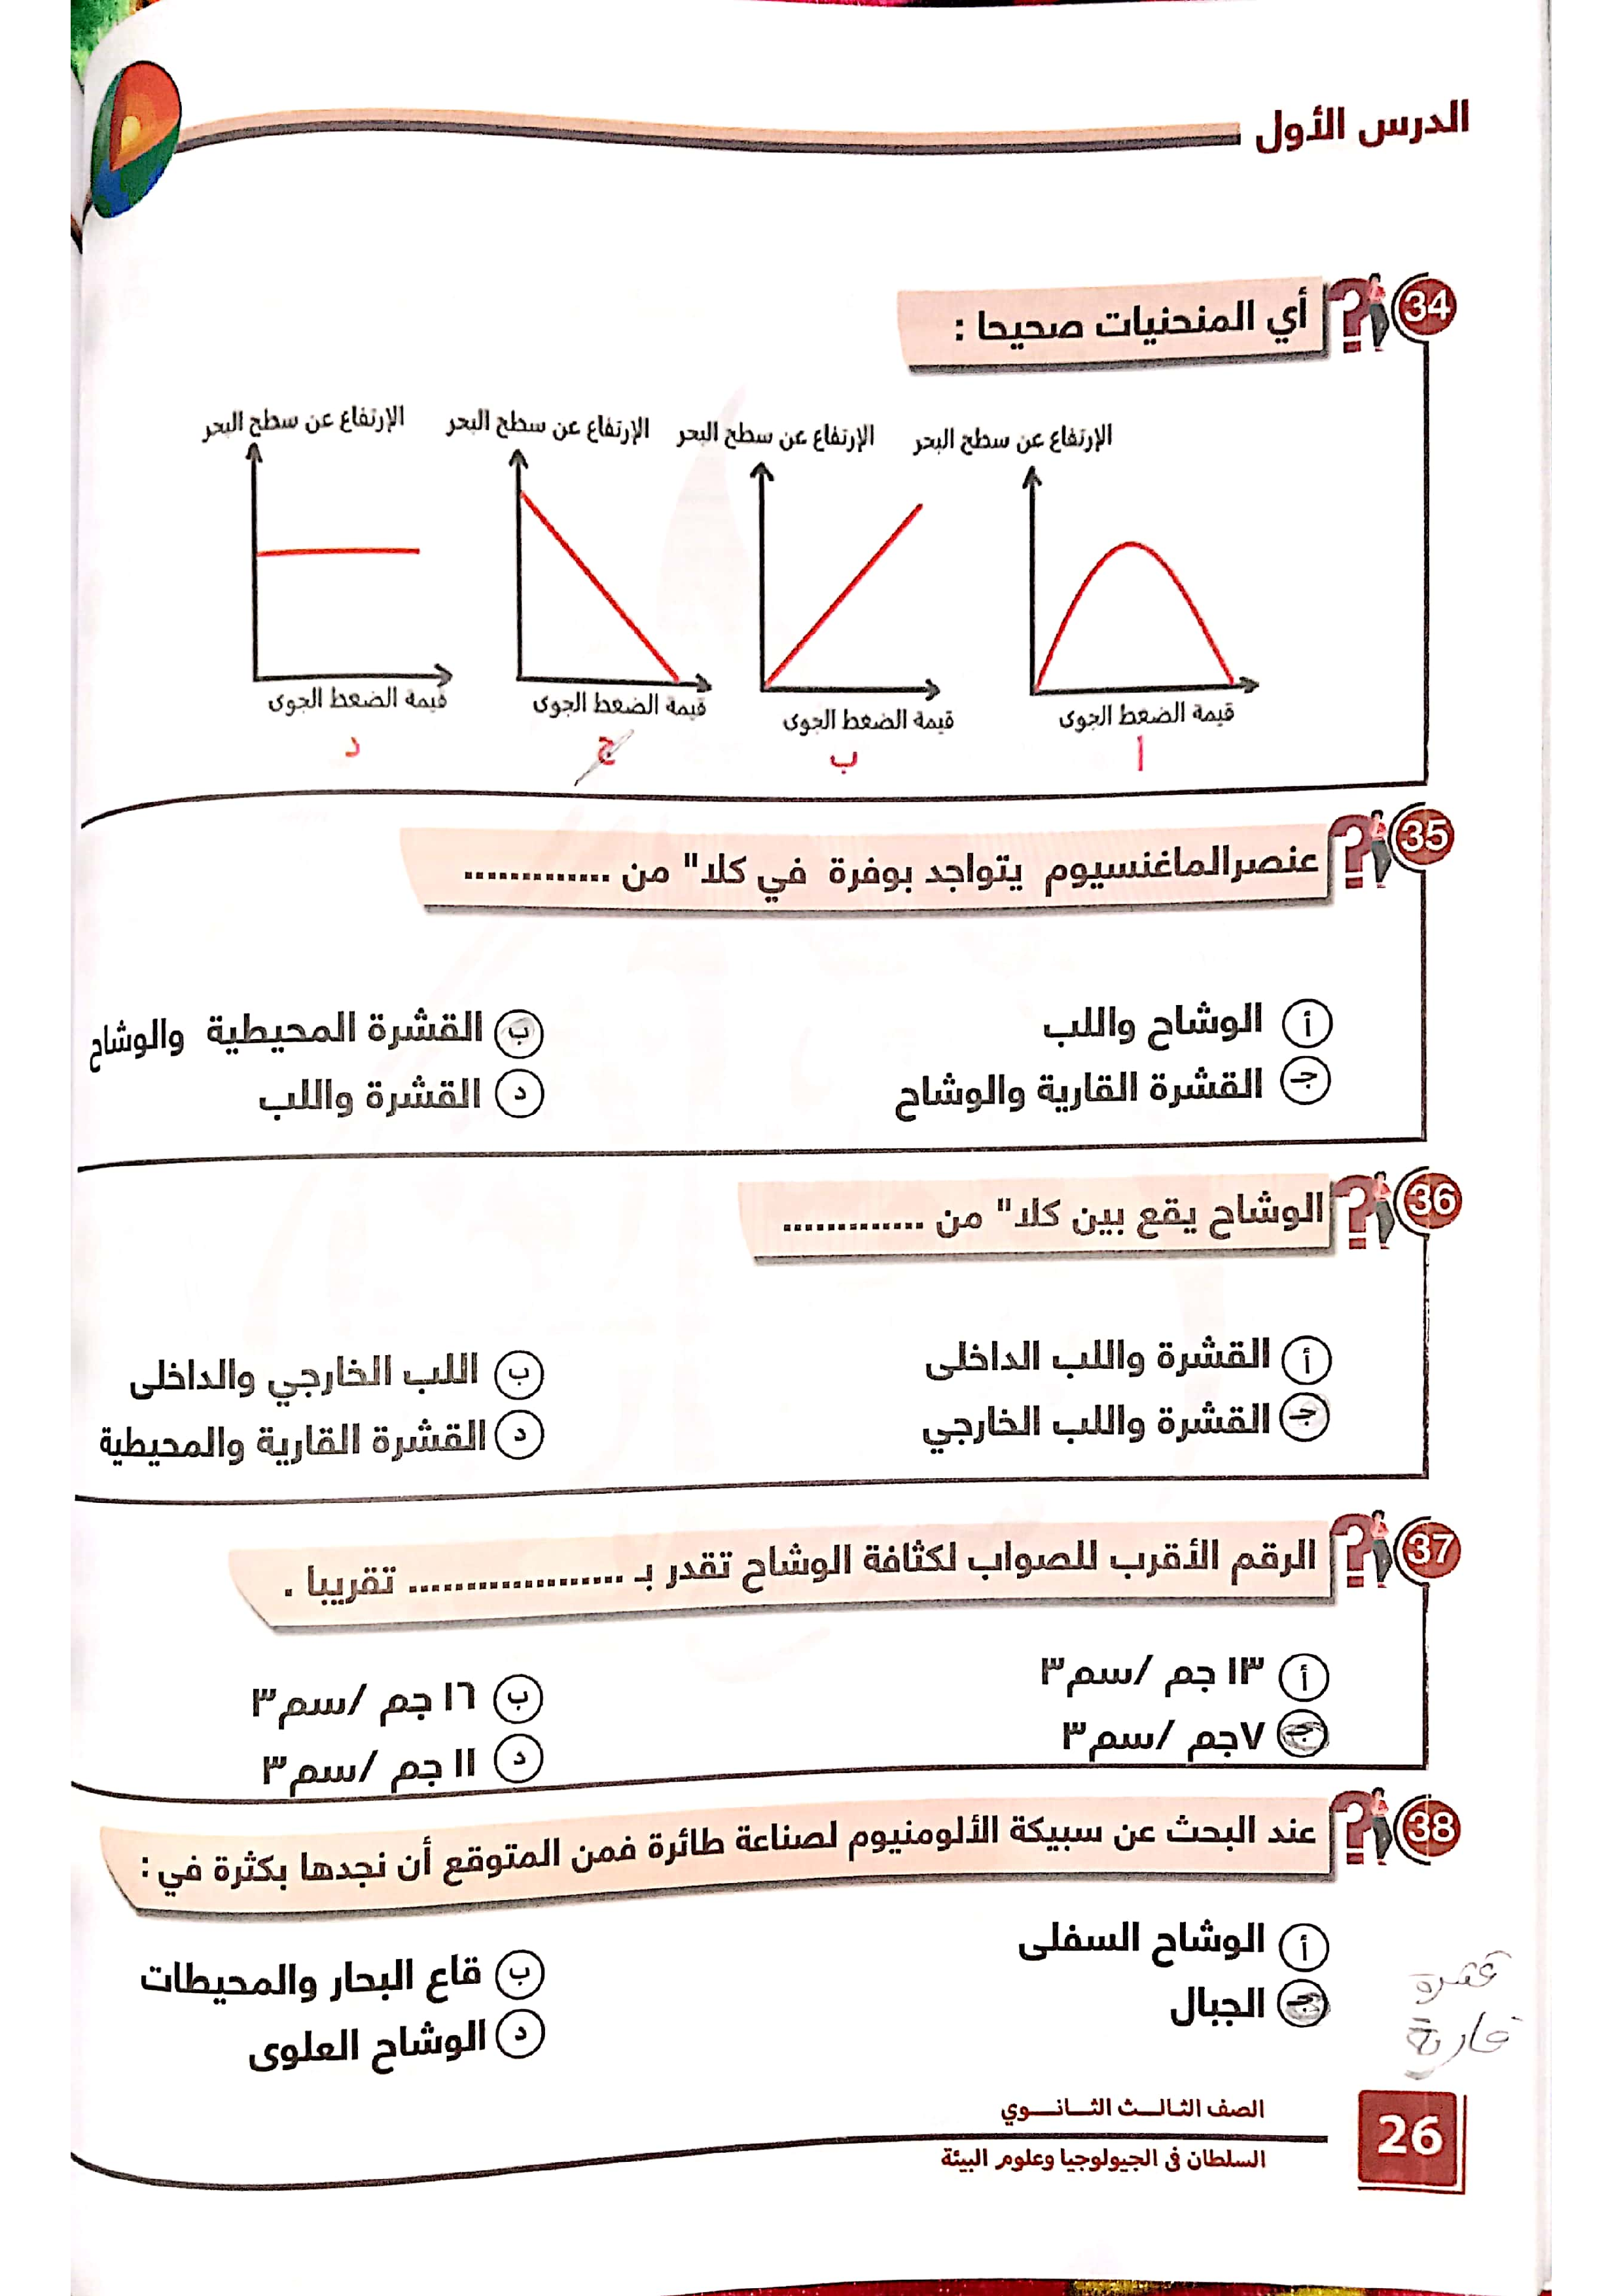 الدرس الأول
34
أي المنحنيات صحيحا :
الإرتفاع عن سطح البحر
قيمة الضغط الجوى
أ
الإرتفاع عن سطح البحر
قيمة الضغط الجوى
ب
الإرتفاع عن سطح البحر
قيمة الضغط الجوى
ج
الإرتفاع عن سطح البحر
قيمة الضغط الجوى
د
35
عنصرالماغنسيوم يتواجد بوفرة في كلا" من .............
أ الوشاح واللب
ب القشرة المحيطية والوشاح
جـ القشرة القارية والوشاح
د القشرة واللب
36
الوشاح يقع بين كلا" من .............
أ القشرة واللب الداخلى
ب اللب الخارجي والداخلى
جـ القشرة واللب الخارجي
د القشرة القارية والمحيطية
37
الرقم الأقرب للصواب لكثافة الوشاح تقدر بـ ................... تقريبا .
أ ١٣ جم /سم٣
ب ١٦ جم /سم٣
جـ ٧جم /سم٣
د ١١ جم /سم٣
38
عند البحث عن سبيكة الألومنيوم لصناعة طائرة فمن المتوقع أن نجدها بكثرة في :
أ الوشاح السفلى
ب قاع البحار والمحيطات
جـ الجبال
د الوشاح العلوى
قشرة
قارية
الصف الثالـــث الثـــانـــوي
السلطان فى الجيولوجيا وعلوم البيئة
26